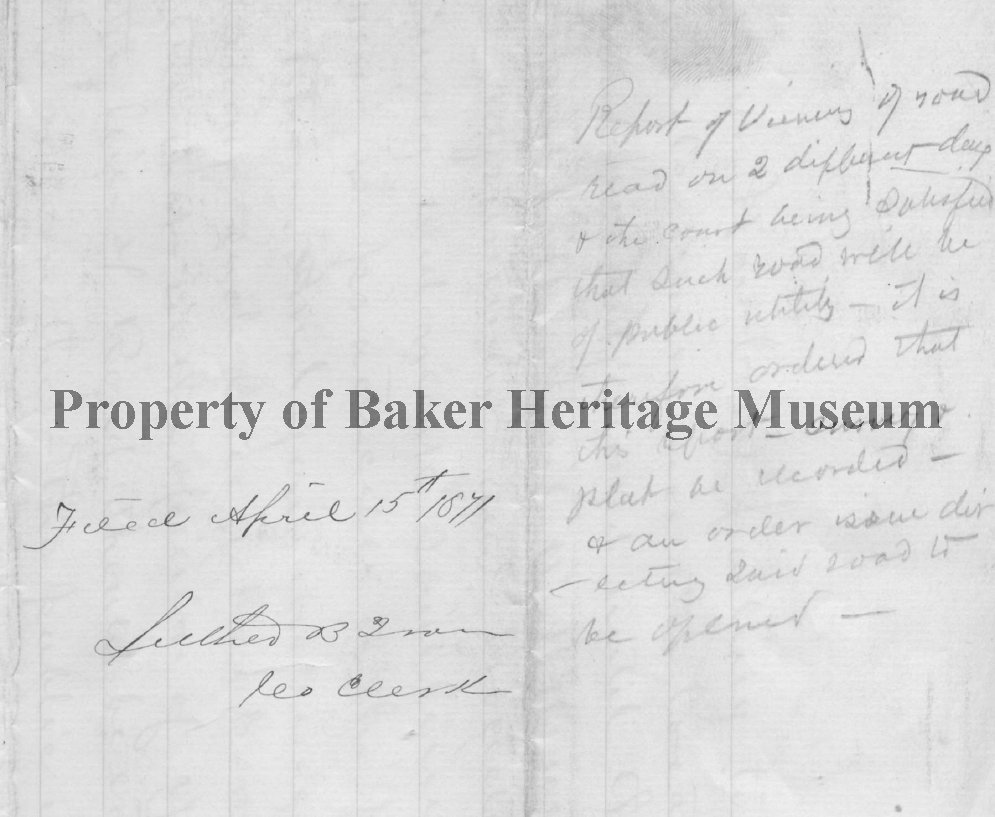 Filed April 15th 1871
B
Co Clerk
Report of Viewers of road
read on 2 different days
& the court being satisfied
that such road will be
of public utility – it is
therefore ordered that
this report – survey &
plat be recorded –
& an order issue dir
– ecting said road to
be opened –
Property of Baker Heritage Museum